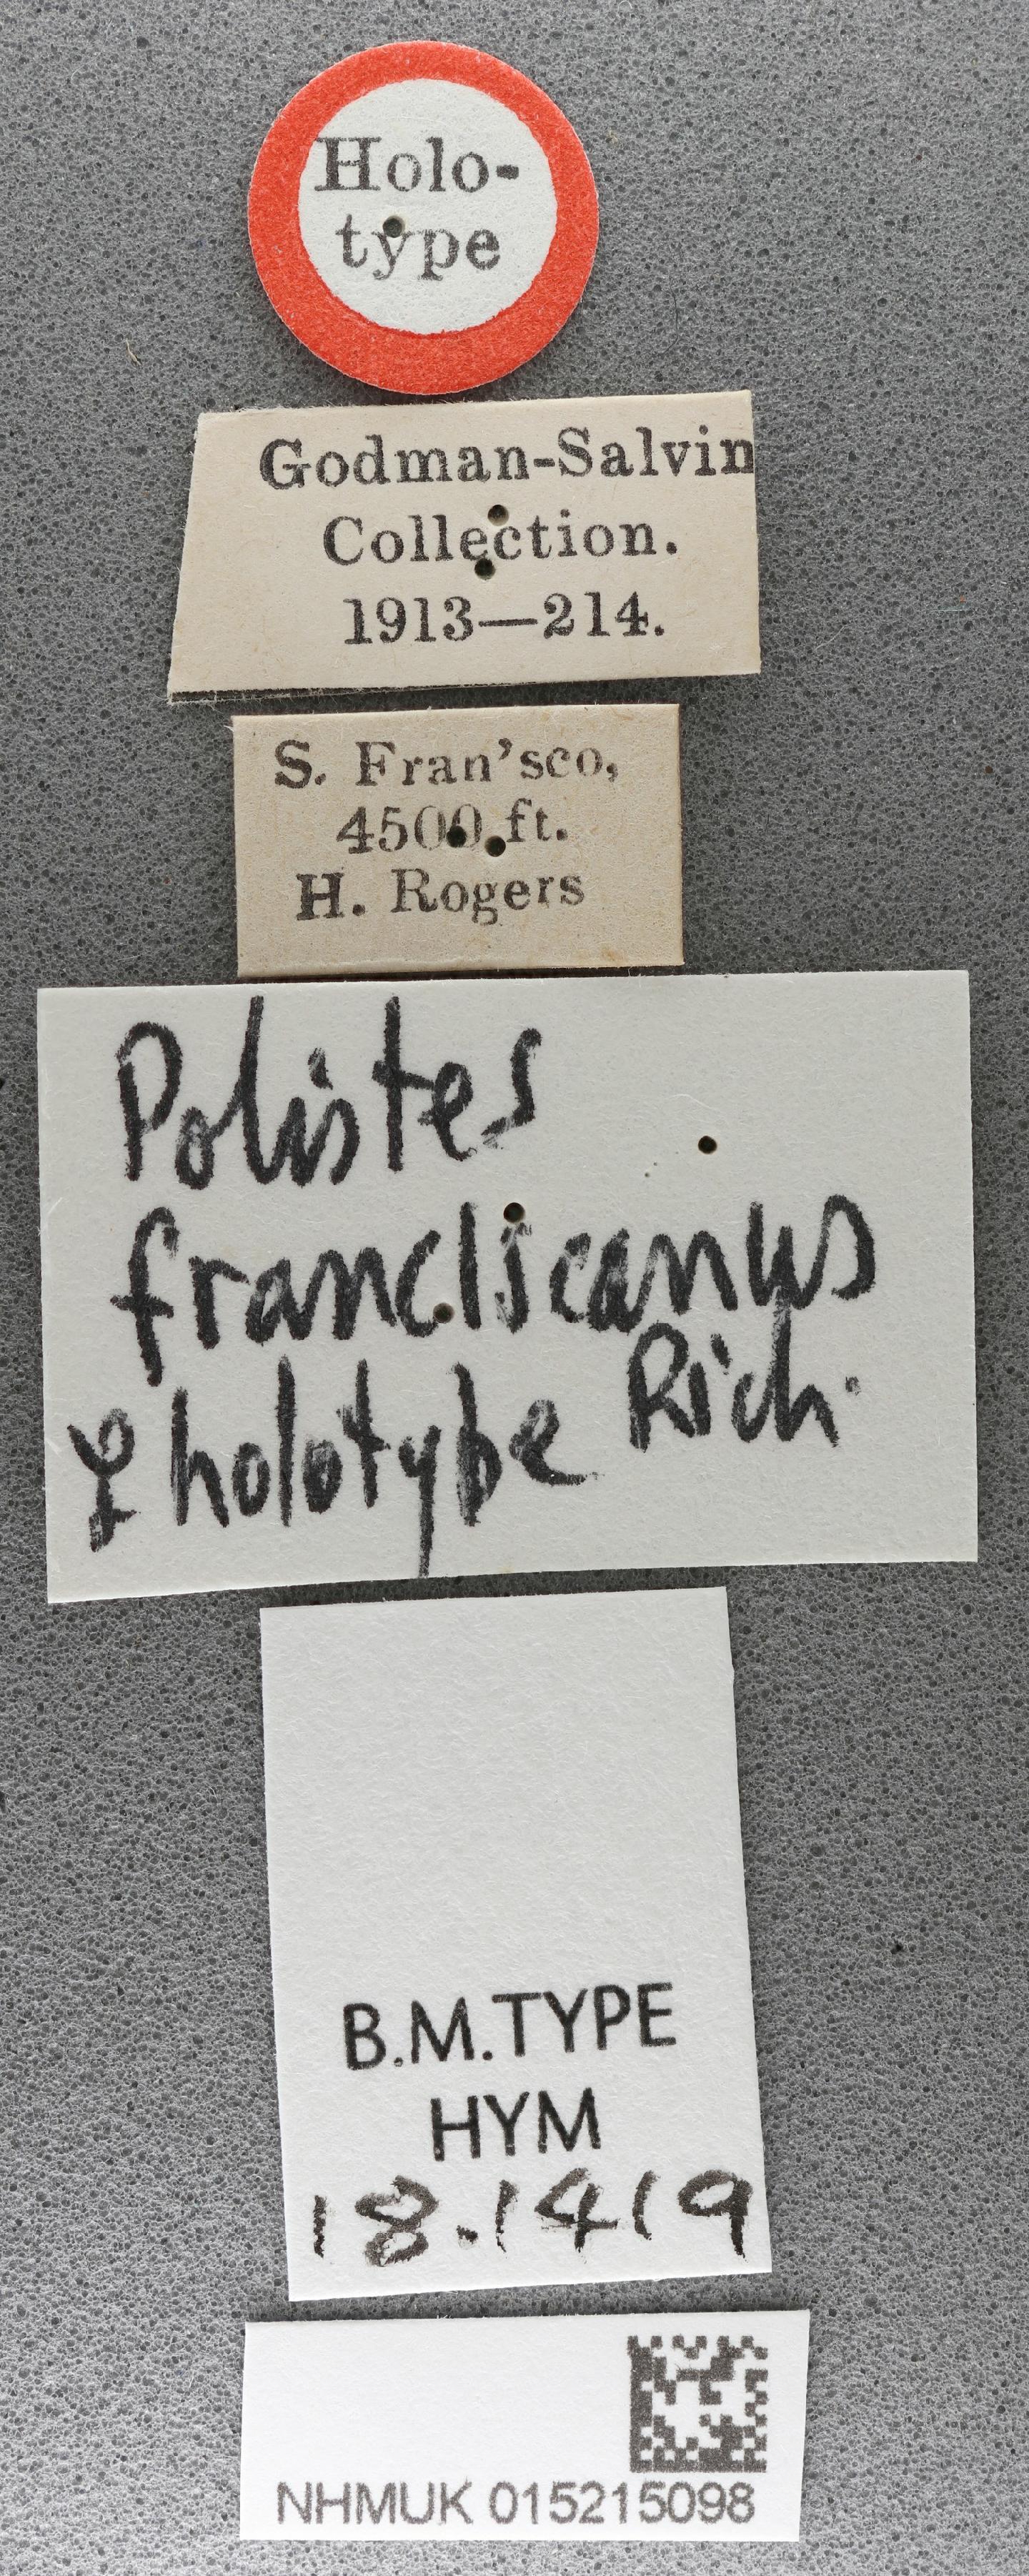 Holo-
type
Godman-Salvin
Collection.
1913—214.
S. Fran'sco,
4500 ft.
H. Rogers
Polistes
franciscanus
Rich.
♀ holotype
B.M.TYPE
HYM
18.1419
NHMUK 015215098